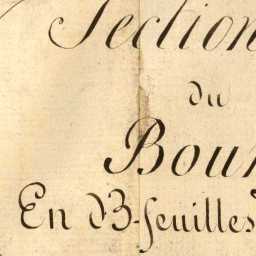 Section
du
Bour
En 3 feuilles